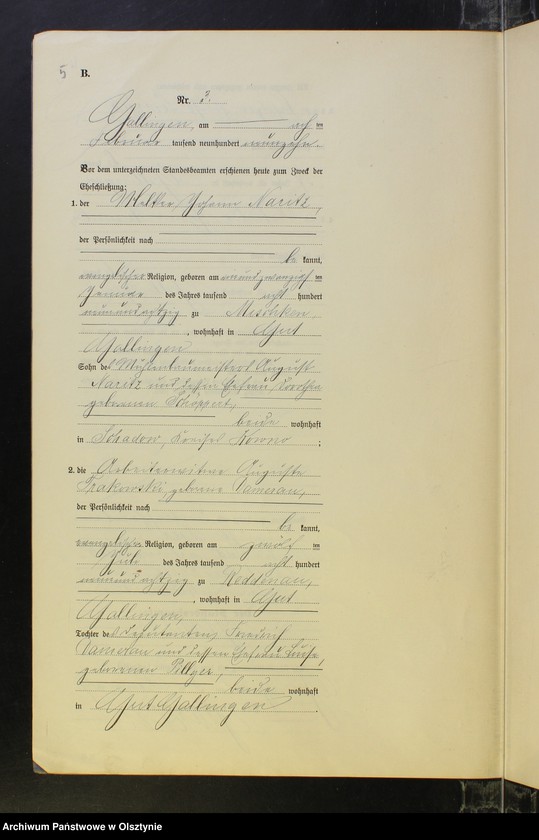 5 B.
Nr. 3.
Gallingen, am acht ten
Februar tausend neunhundert neunzehn.
Vor dem unterzeichneten Standesbeamten erschienen heute zum Zweck der
Eheschließung:
1. der Melker Johann Naritz,
der Persönlichkeit nach
be kannt,
evangelischer Religion, geboren am ten
Januar des Jahres tausend acht hundert
neunundachtzig zu Meschken,
, wohnhaft in Gut
Gallingen
Sohn des Mühlenbaumeisters August
Naritz und dessen Ehefrau, Dorothea
geborenen Schöppert,
beide wohnhaft
in Schadow, Kreises Kowno ;
2. die Arbeiterwitwe Auguste
Krakowski, geborene Damerau,
der Persönlichkeit nach
be kannt,
evangelischer Religion, geboren am zwölf ten
Juli des Jahres tausend acht hundert
neunundachtzig zu Reddenau,
, wohnhaft in Gut
Gallingen,
Tochter des Deputanten Heinrich
Damerau und dessen Ehefrau Luise,
geborenen
beide wohnhaft
in Gut Gallingen .
Archiwum Państwowe w Olsztynie